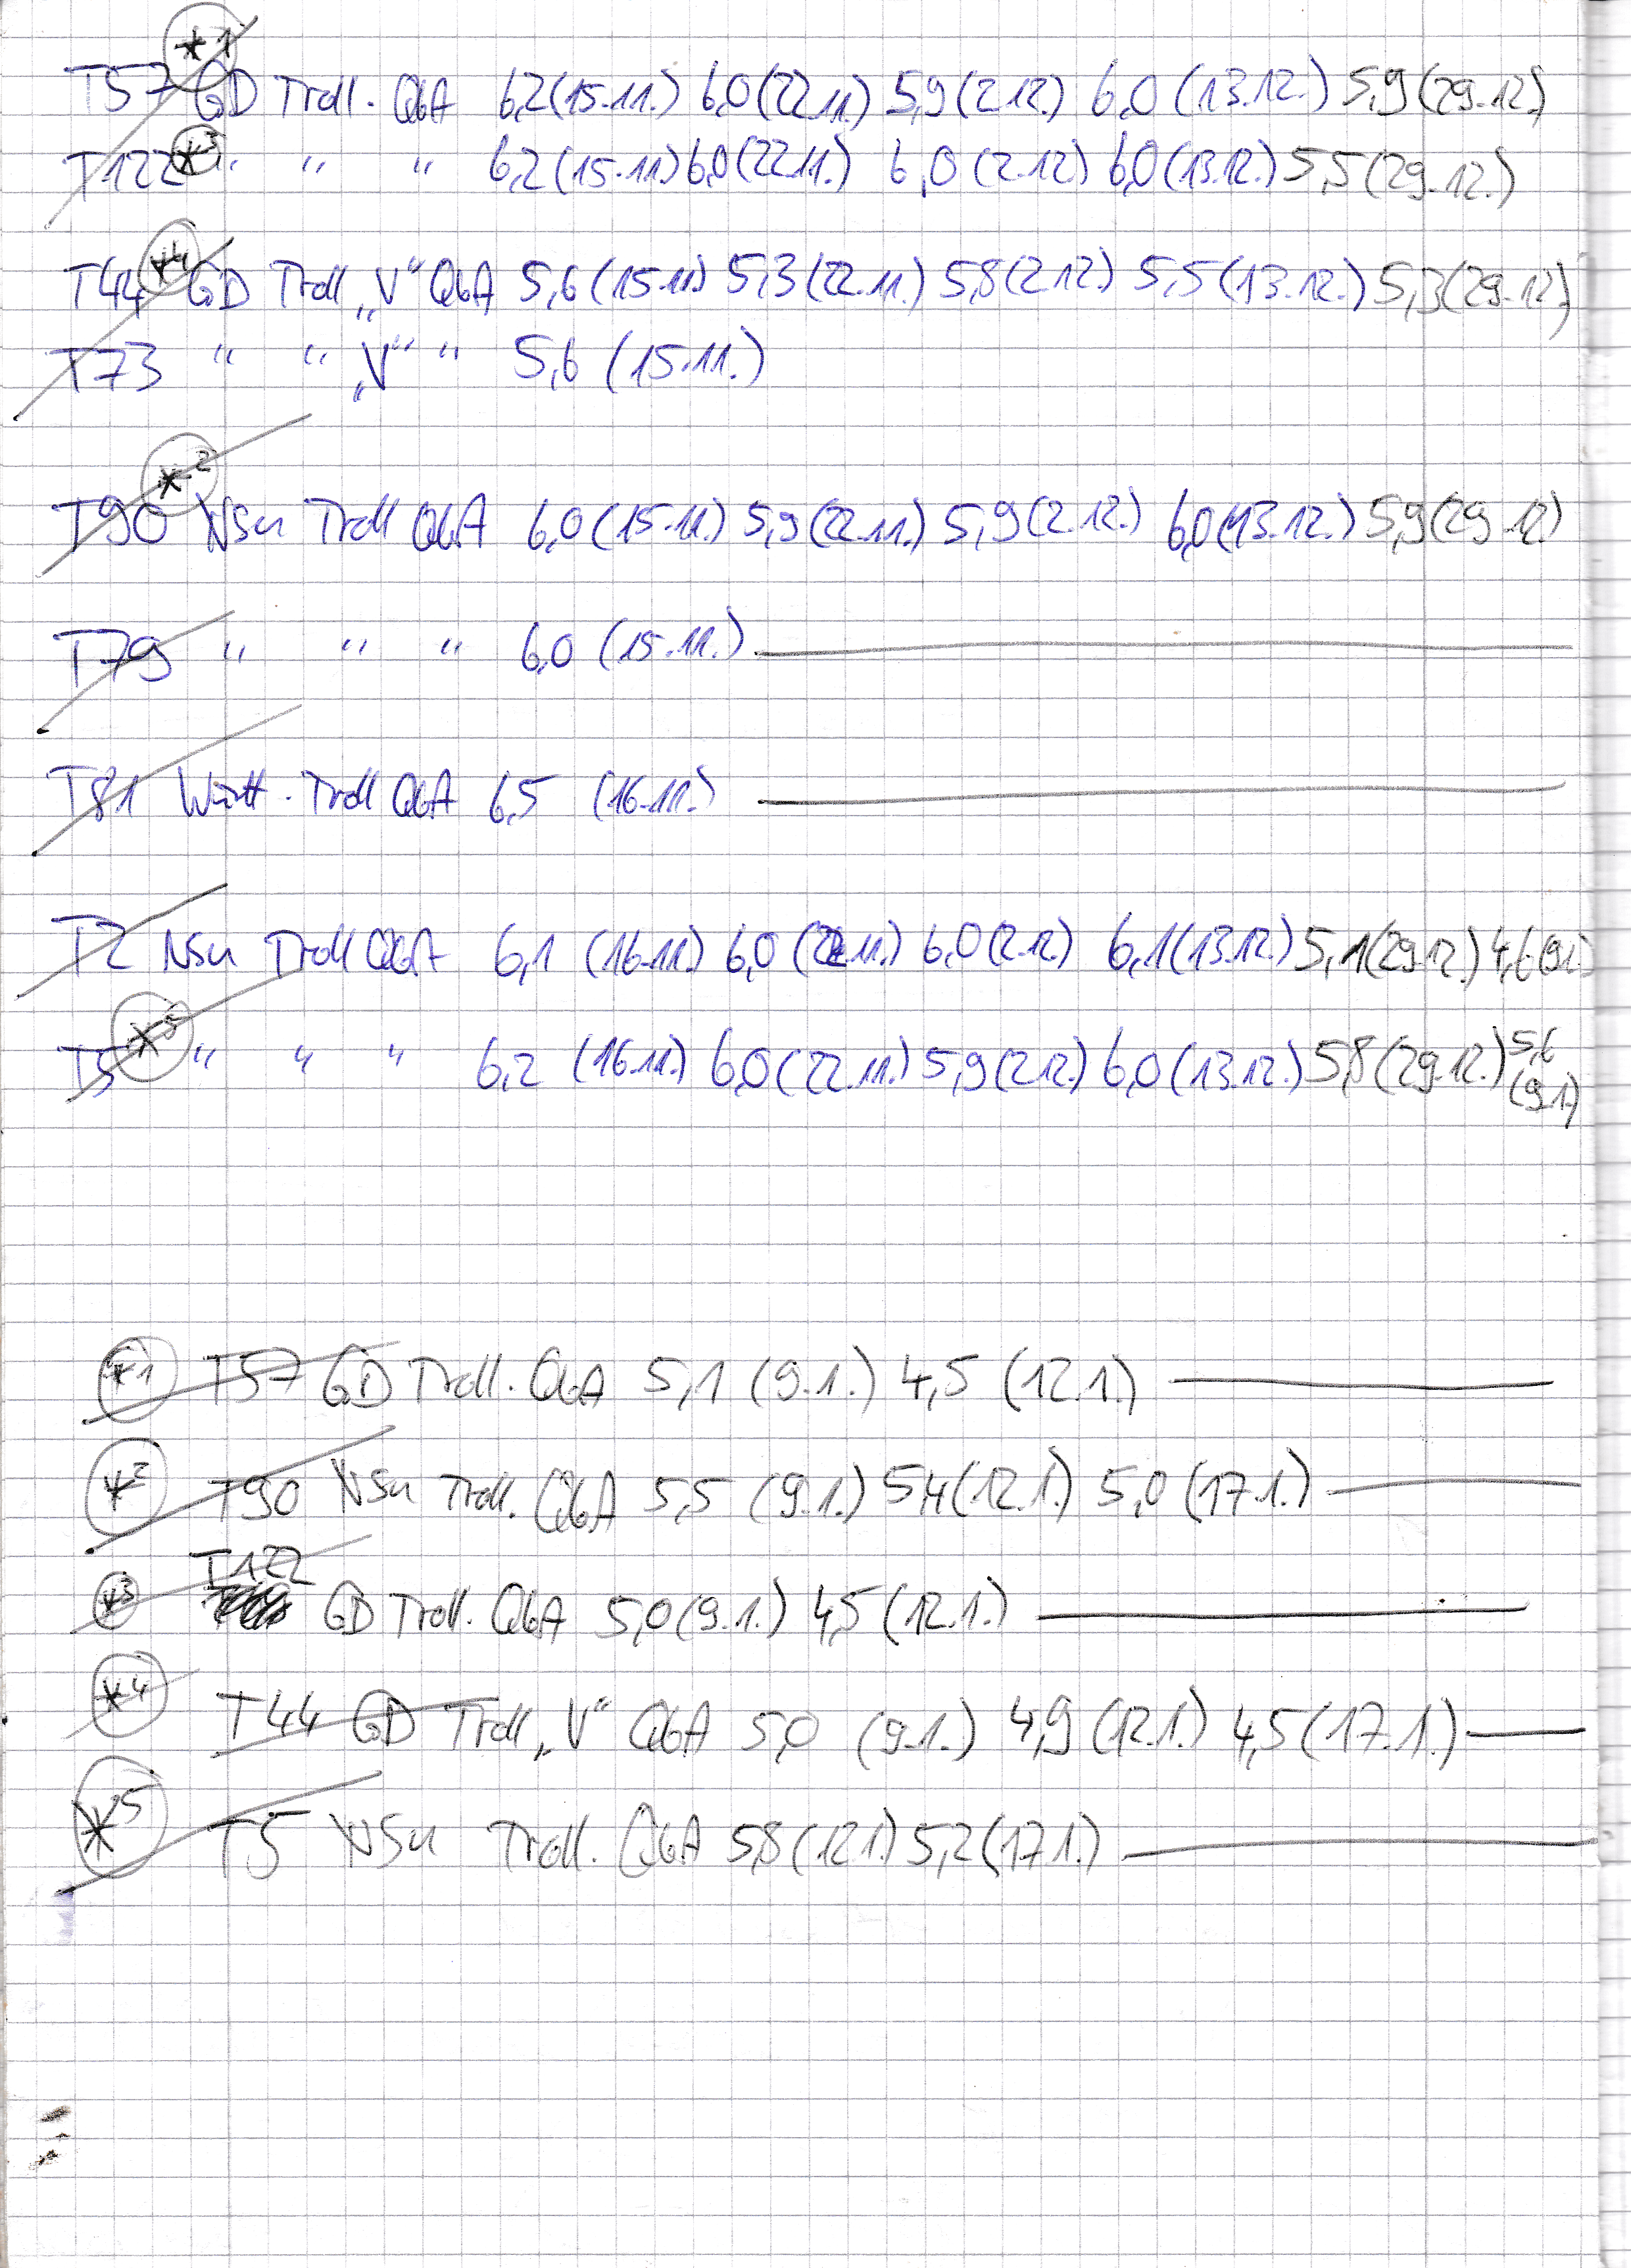 *1
T57 GD Troll. QbA 6,2 (15.11.) 6,0 (22.11.) 5,9 (2.12.) 6,0 (13.12.) 5,9 (29.12.)
T122 *3 " " " 6,2 (15.11.) 6,0 (22.11.) 6,0 (2.12.) 6,0 (13.12.) 5,5 (29.12.)
*4
T44 GD Troll „V“ QbA 5,6 (15.11.) 5,3 (22.11.) 5,8 (2.12.) 5,5 (13.12.) 5,3 (29.12.)
T73 " " „V“ " 5,6 (15.11.)
*2
T90 NSu Troll QbA 6,0 (15.11.) 5,9 (22.11.) 5,9 (2.12.) 6,0 (13.12.) 5,9 (29.12.)
T79 " " " 6,0 (15.11.)
T81 Württ. Troll QbA 6,5 (16.11.)
T2 NSu Troll QbA 6,1 (16.11.) 6,0 (22.11.) 6,0 (2.12.) 6,1 (13.12.) 5,1 (29.12.) 4,6 (9.1.)
T5 *5 " " " 6,2 (16.11.) 6,0 (22.11.) 5,9 (2.12.) 6,0 (13.12.) 5,8 (29.12.) 5,6 (9.1)
*1 T57 GD Troll. QbA 5,1 (9.1.) 4,5 (12.1.)
*2 T90 NSu Troll. QbA 5,5 (9.1.) 5,4 (12.1.) 5,0 (17.1.)
*3 T122 GD Troll. QbA 5,0 (9.1.) 4,5 (12.1.)
*4 T44 GD Troll „V“ QbA 5,0 (9.1.) 4,9 (12.1.) 4,5 (17.1.)
*5 T5 NSu Troll. QbA 5,8 (12.1.) 5,2 (17.1.)